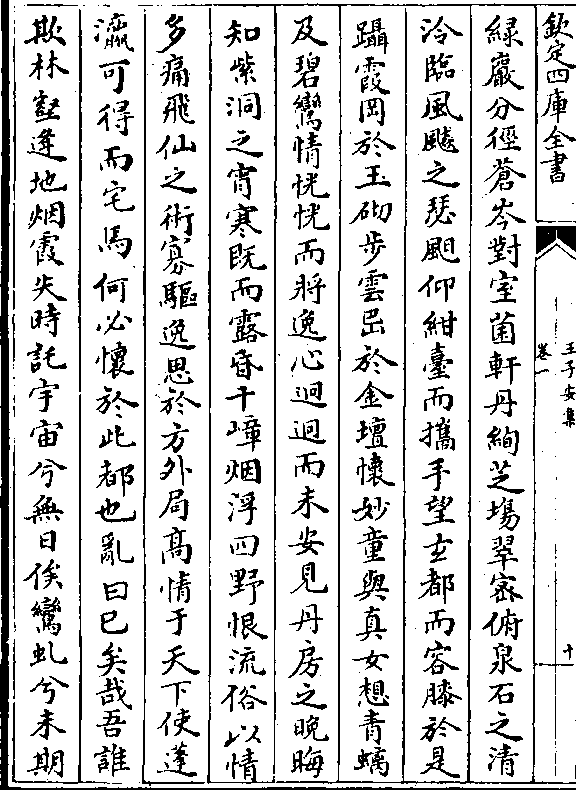 欽定四庫全書
王子安集
卷一
十
緑巖分徑蒼岑對室菌軒丹絢芝場翠密俯泉石之清
泠臨風飈之瑟䬃仰紺臺而攜手望玄都而容膝於是
躡霞岡於玉砌步雲岊於金壇懷妙童與真女想青螭
及碧鸞情恍恍而將逸心迴迴而未安見丹房之晚晦
知紫洞之宵寒既而露昏千嶂烟浮四野恨流俗以情
多痛飛仙之術寡驅逸思於方外局髙情于天下使蓬
瀛可得而宅焉何必懷於此都也亂曰已矣哉吾誰
欺林壑逢地烟霞失時託宇宙兮無日俟鸞虬兮未期